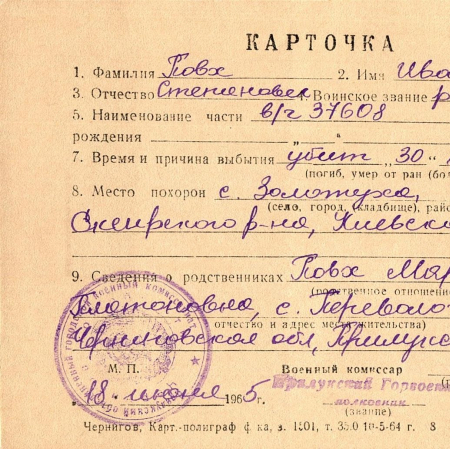 КАРТОЧКА
1. Фамилия Повх 2. Имя Ива
3. Отчество Степанович 4. Воинское звание р
5. Наименование части в/ч 37608
рождения „ “
7. Время и причина выбытия убит „30
(погиб, умер от ран (бол
8. Место похорон с. Золотуха,
(село, город, (кладбище), рай
Сквирского р-на, Киевско
9. Сведения о родственниках Повх Мар
(родственное отношение
Платоновна, с. Перевоło
отчество и адрес местожительства)
Черниговская обл, Прилукс
М. П. Военный комиссар
Прилукский Горвоен
18 июня 1965 полковник
(звание)
Чернигов, Карт.-полиграф ф-ка, з. 1501, т. 35.0 10-5-64 г. 8